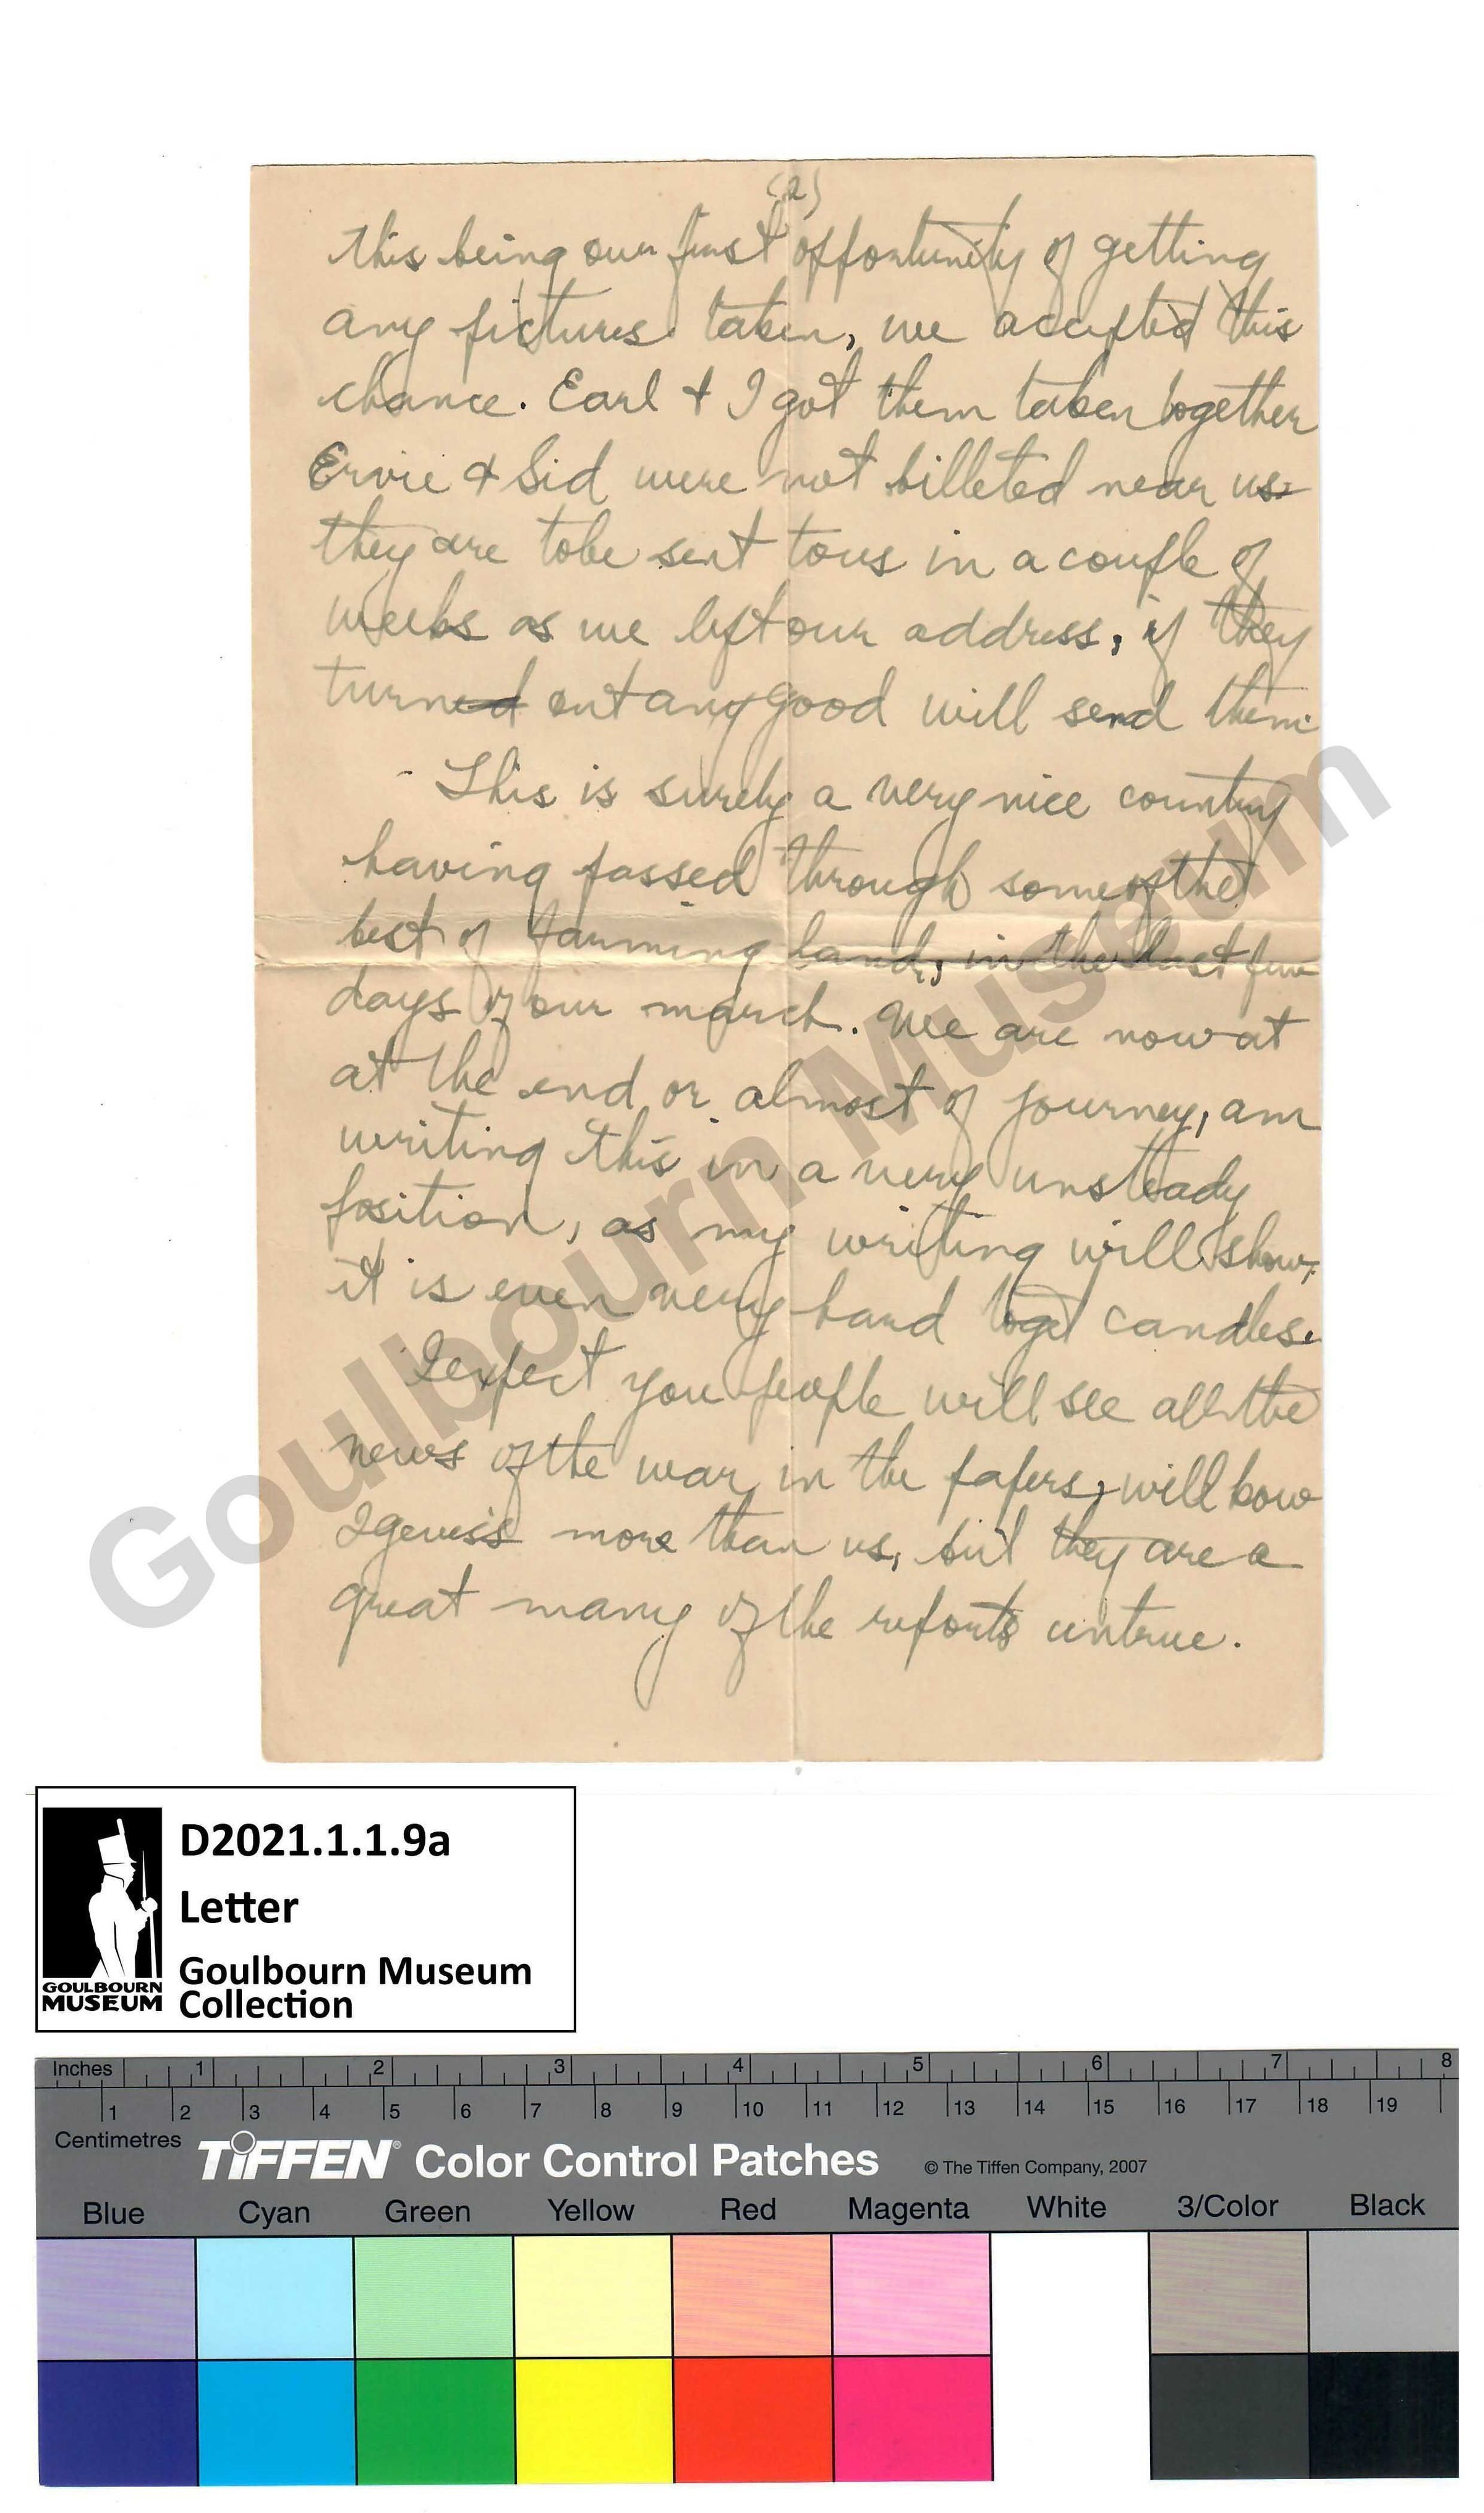 (2)
this being our first opportunity of getting
any pictures taken, we accepted this
chance. Earl & I got them taken together
Ervie & Sid were not billeted near us
they are to be sent to us in a couple of
weeks as we left our address, if they
turned out any good will send them
This is surely a very nice country
having passed through some of the
best of farming land, in the last few
days of our march. We are now at
at the end or almost of journey, am
writing this in a very unsteady
position, as my writing will show,
it is even very hard to get candles.
I expect you people will see all the
news of the war in the papers, will kow
I geuess more than us, but they are a
great many of the reports untrue.
Goulbourn Museum
D2021.1.1.9a
Letter
Goulbourn Museum
Collection
GOULBOURN
MUSEUM
Inches 1 2 3 4 5 6 7 8
1 2 3 4 5 6 7 8 9 10 11 12 13 14 15 16 17 18 19
Centimetres
TIFFEN® Color Control Patches © The Tiffen Company, 2007
Blue Cyan Green Yellow Red Magenta White 3/Color Black